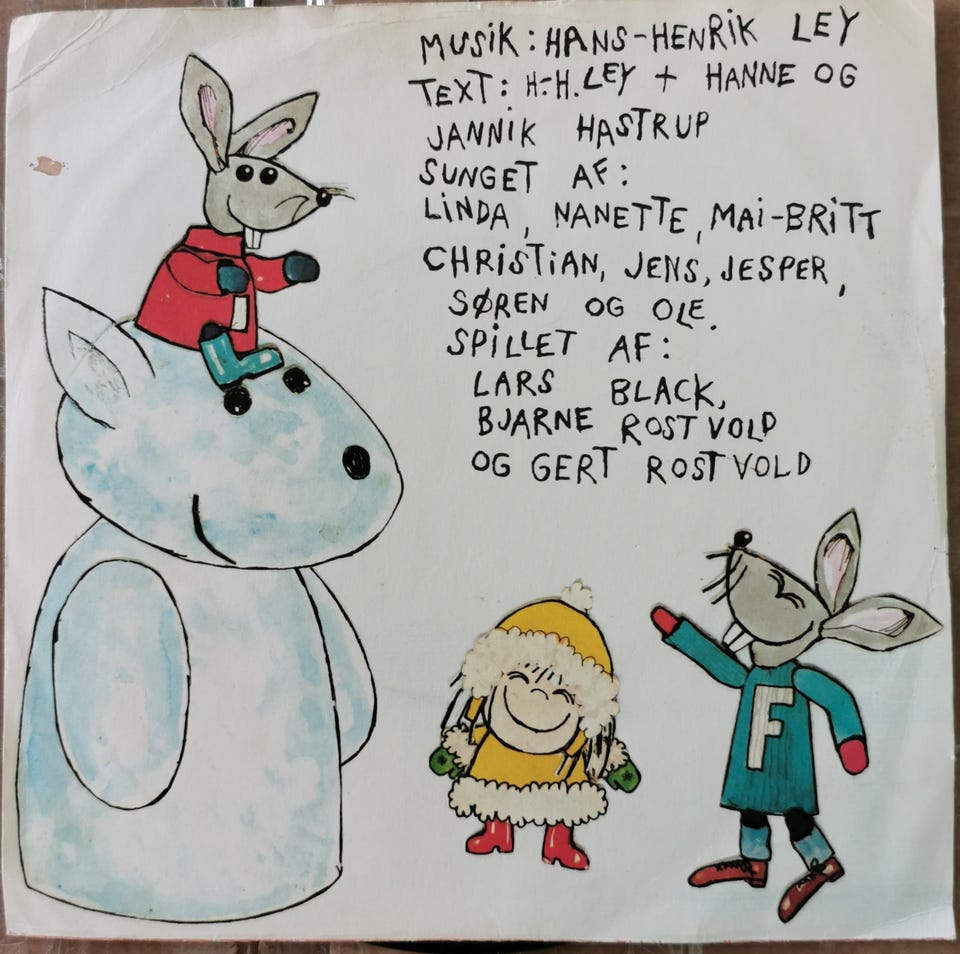 MUSIK: HANS-HENRIK LEY
TEXT: H-H. LEY + HANNE OG
JANNIK HASTRUP
SUNGET AF:
LINDA, NANETTE, MAI-BRITT
CHRISTIAN, JENS, JESPER,
SØREN OG OLE.
SPILLET AF:
LARS BLACK,
BJARNE ROSTVOLD
OG GERT ROSTVOLD
F